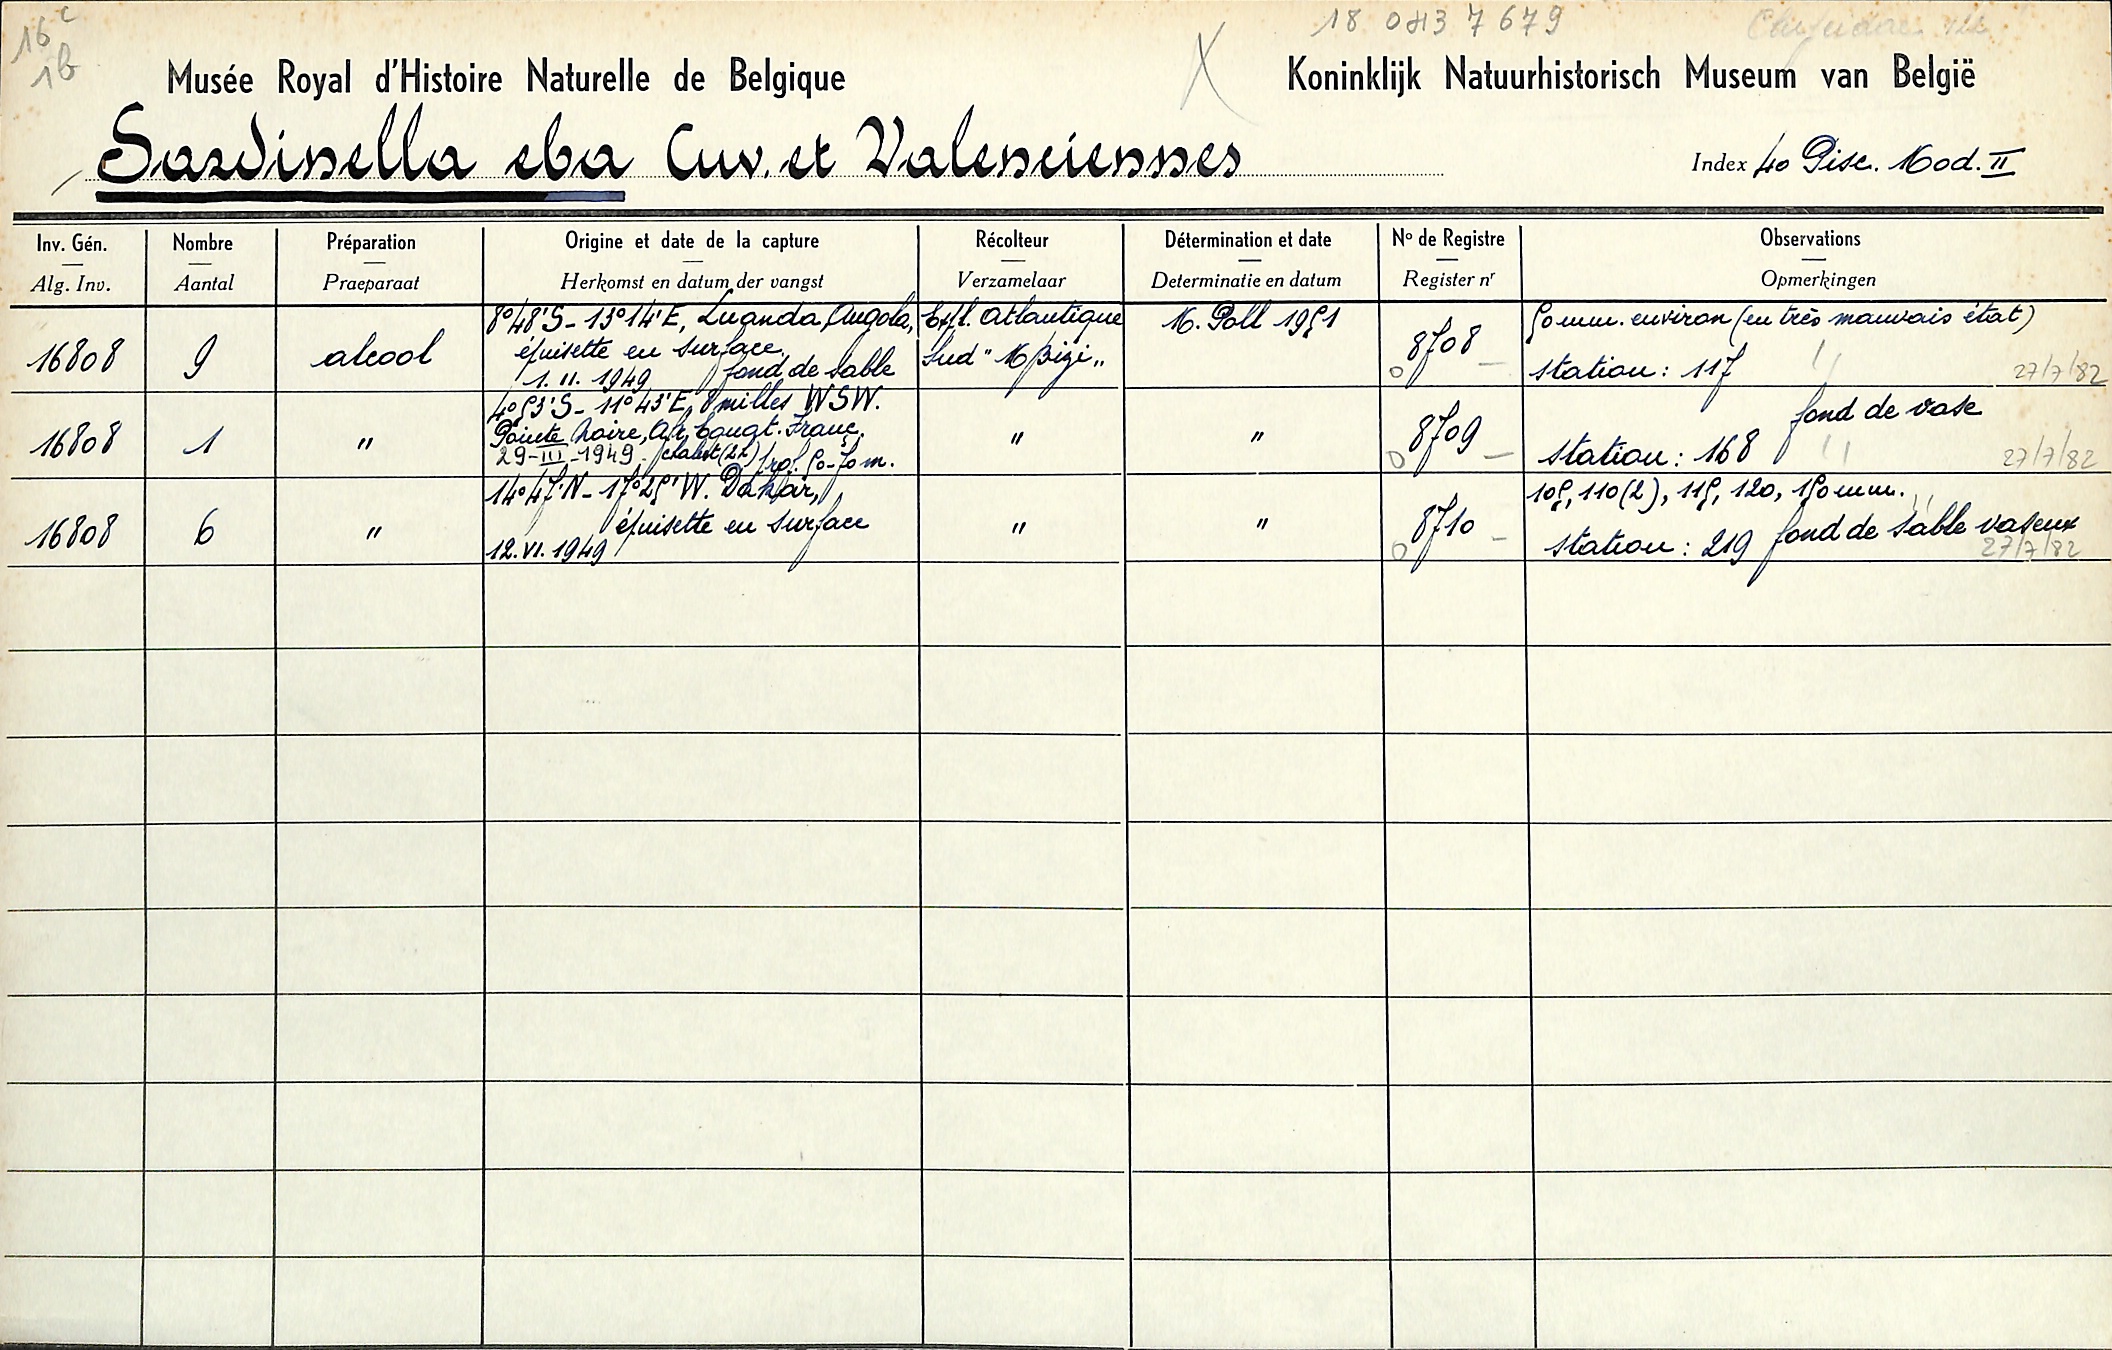 16 c
1b
18 0837679
X
Musée Royal d'Histoire Naturelle de Belgique
Koninklijk Natuurhistorisch Museum van België
Sardinella eba Cuv. et Valenciennes
Index 40 Pisc. Mod. II
Inv. Gén. Nombre Préparation Origine et date de la capture Récolteur Détermination et date No de Registre Observations
Alg. Inv. Aantal Praeparaat Herkomst en datum der vangst Verzamelaar Determinatie en datum Register nr Opmerkingen
8°48'S - 13°14'E, Luanda, Angola, Expl. Atlantique M. Poll 1951 50 mm. environ (en très mauvais état)
16808 9 alcool épuisette en surface. Sud "Mbizi" 8708
1. II. 1949 fond de sable station: 117 27/7/82
4°53'S - 11°43'E, 8 milles WSW. fond de vase
16808 1 " Pointe Noire, Afr. Congt. Franç. " " 8709
29-III-1949 chalut (2L) prof. 50-70 m. station: 168 27/7/82
14°47'N - 17°25'W. Dakar, 105, 110(2), 115, 120, 150 mm.
16808 6 " épuisette en surface " " 8710 fond de sable vaseux
12. VI. 1949 station: 219 27/7/82